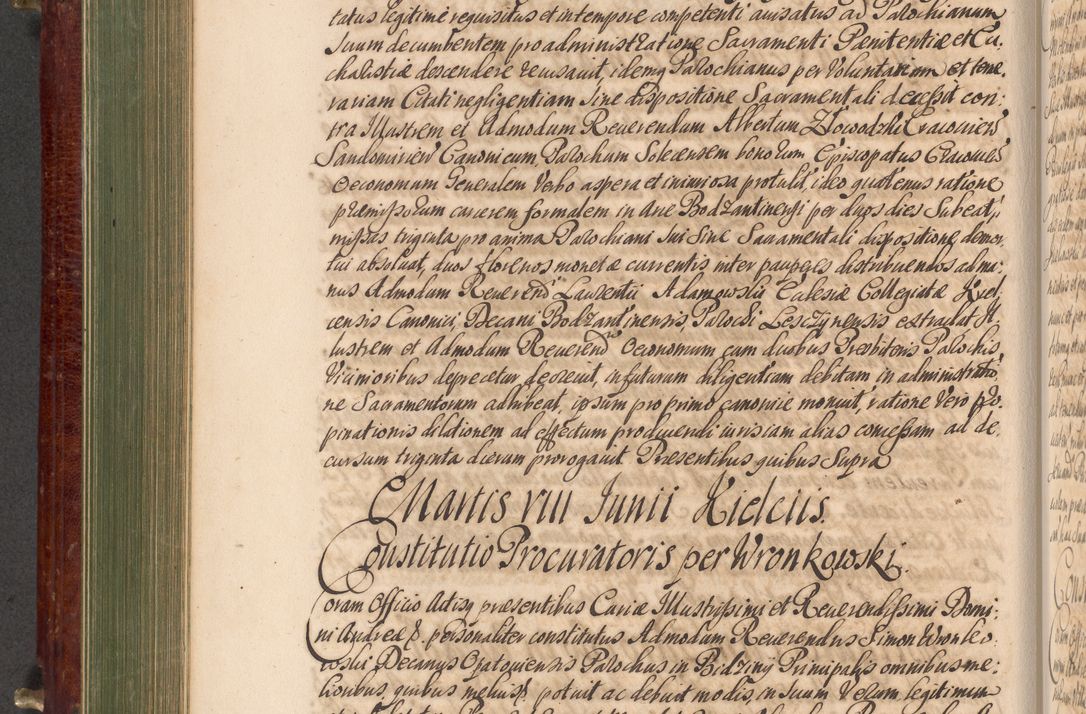 tatus legitime requisitus et in tempore competenti auisatus ad Parochianum
suum decumbentem pro administratione Sacramenti Pænitentiæ et Eu,
charistiæ descendere recusauit, idemq Parochianus per Voluntariam et teme,
rariam Citati negligentiam sine dispositione Sacramentali decessit con:
tra Illustrem et Admodum Reuerendum Albertum Zlowodzki Cracouien
Sandomirien Canonicum, Parochum Solecensem bonorum Episcopatus Cracouien
Oeconomum Generalem Verbo aspera et iniuriosa protulit, ideo quatenus ratione
præmissorum carcerem formalem in Arce Bodzantinensi per duos dies Subeat,
missas triginta pro anima Parochiani sui sine Sacramentali dispositione demor,
tui absoluat, duos florenos monetæ currentis inter pauperes distribuendos ad ma:
nus Admodum Reuerend Laurentii Adamowski Ecclesiæ Collegiatæ Kiel,
censis Canonici, Decani Bodzantinensis, Parochi Leszczynensis extradat Il
lustrem et Admodum Reuerend Oeconomum cum duobus Presbiteris Parochis
Vicinioribus deprecetur decreuit, in futurum diligentiam debitam in administratio,
ne Sacramentorum adhibeat, ipsum pro primo canonice monuit, ratione Vero pro,
pinationis dilationem ad effectum producendi iuris iam alias concessam ad de,
cursum triginta dierum prorogauit Præsentibus quibus Supra
Martis VIII Junii Kielciis.
Constitutio Procuratoris per Wronkowski.
Coram Officio Actisq præsentibus Curiæ Illustrissimi et Reuerendissimi Domi:
ni Andreæ &. personaliter constitutus Admodum Reuerendus Simon Wronko,
wski Decanus Opatouiensis Parochus in Bidziny Principalis omnibus me:
lioribus, quibus melius& potuit ac debuit modis, in suum Verum legitimum